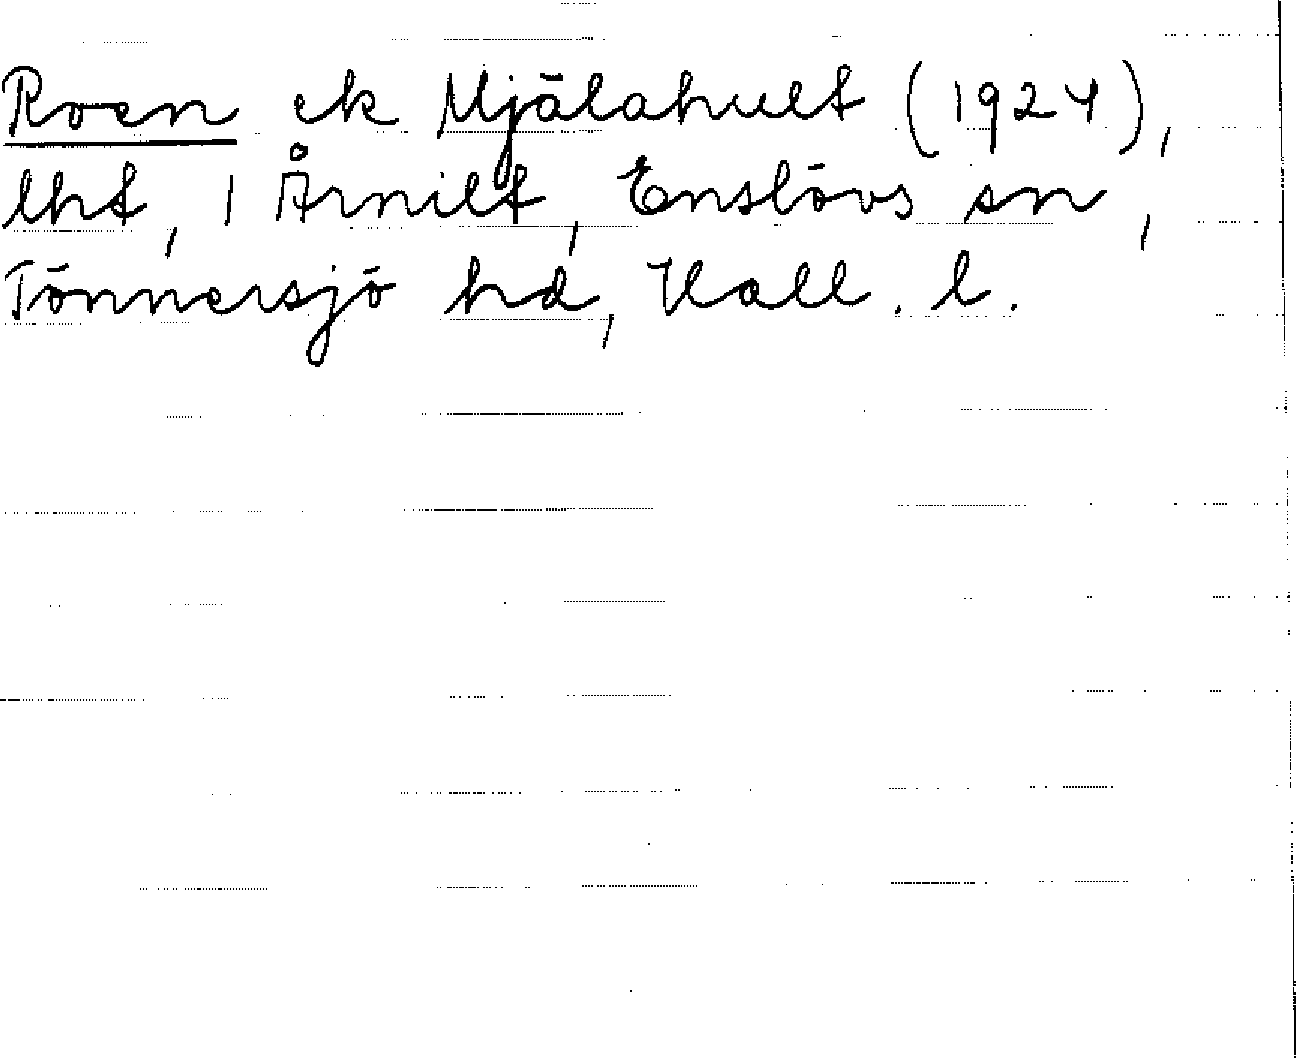 Roen ek Mjälahult (1924),
lht, 1 Årnilt, Enslövs sn,
Tönnersjö hd, Hall. l.